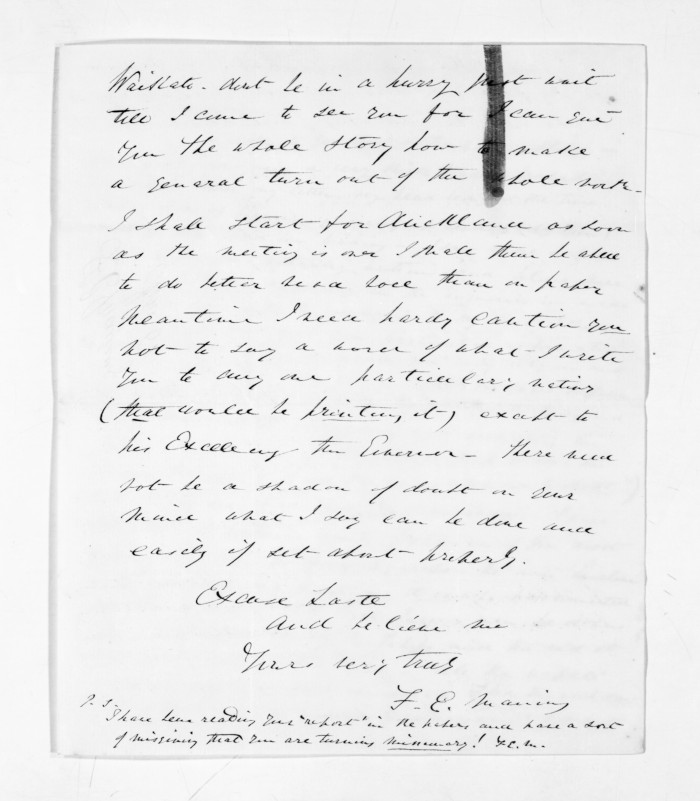 Waikato - dont be in a hurry just wait
till I come to see you for I can give
you the whole story how to make
a general turn out of the whole work -
I shall start for Auckland as soon
as the meeting is over I shall then be able
to do better viva voce than on paper
Meantime I need hardy caution you
not to say a word of what I write
you to any one particularly natives
(that would be printing it) except to
his Excellency the Governor - there need
not be a shadow of doubt on your
mind what I say can be done and
easily if set about properly.
Excuse haste
and believe me
Yours very truly
F. E. Maning
P. S.
I have been reading your "report" in the papers and have a sort
of misgiving that you are turning missionary! F.E.M.